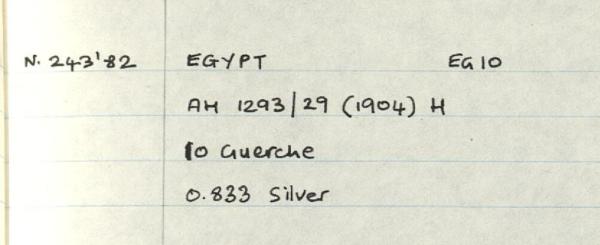 N. 243'82 EGYPT EG 10
AH 1293/29 (1904) H
10 Guerche
0.833 Silver